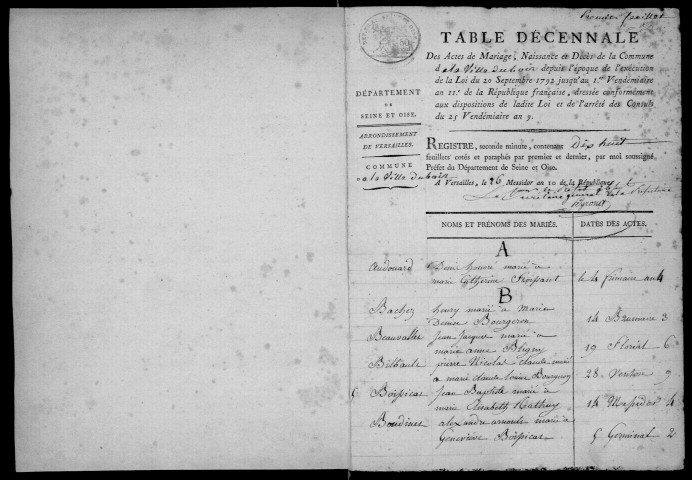 Premier feuillet
TABLE DÉCENNALE
Des Actes de Mariage, Naissance et Décès de la Commune
de la Ville du bois depuis l'époque de l'exécution
de la Loi du 20 Septembre 1792 jusqu'au 1.er Vendémiaire
an 11.e de la République française, dressée conformément
aux dispositions de ladite Loi et de l'arrêté des Consuls
du 25 Vendémiaire an 9.
DÉPARTEMENT
DE
SEINE ET OISE.
ARRONDISSEMENT
DE VERSAILLES.
COMMUNE
de la Ville du bois
REGISTRE, seconde minute, contenant Dix huit
feuillets cotés et paraphés par premier et dernier, par moi soussigné
Préfet du Département de Seine et Oise.
A Versailles, le 26 Messidor an 10 de la République
secrétaire général de la Préfecture
NOMS ET PRÉNOMS DES MARIÉS.
DATES DES ACTES.
A
Audouard Denis honoré marié à
marie Catherine le 4 frimaire an 4
B
Bachez henry marié à Marie
Denise Bourgeron 14 Brumaire 3
Beauvallet Jean Jacques marié à
marie anne Bligny 19 Floréal 6
pierre Nicolas claude marié
à marie claude louise 28 Ventose 9
5 Boispicar Jean Baptiste marié à
marie Elisabeth 14 Messidor 4
Boudinet alexandre arnoult marié à
Geneviève Boispicar 5 Germinal 2